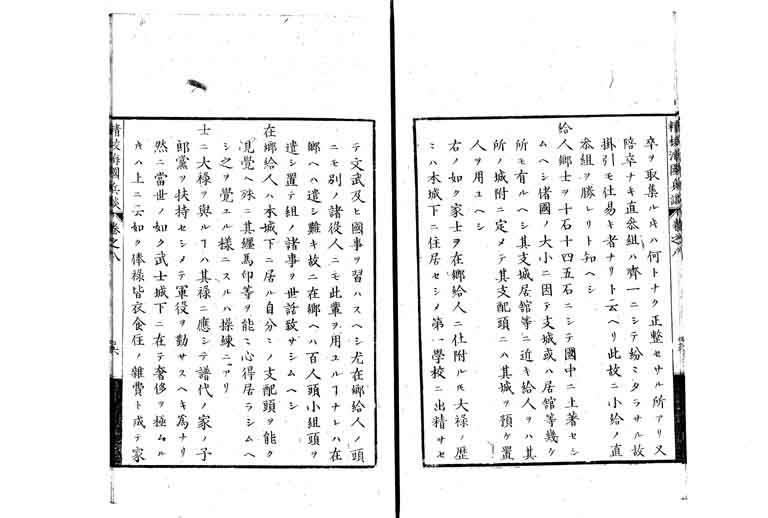 卒ヲ取集ルキハ何トナク正整セサル所アリ又
陪卒ナキ直叅組ハ齊一ニシテ紛ミタラサル故
掛引モ仕易キ者ナリト云ヘリ此故ニ小給ノ直
叅組ヲ勝レリト知ヘシ
給人郷士ヲ十石十四五石ニシテ國中ニ土著セシ
ムヘシ諸國ノ大小ニ因テ支城或ハ居舘等幾ケ
所モ有ルヘシ其支城居舘等ニ近キ給人ヲハ其
所ノ城附ニ定メテ其支配頭ニハ其城ヲ預ケ置
人ヲ用ユヘシ
右ノ如ク家士ヲ在郷給人ニ仕附ルモ大禄ノ歴
ミハ本城下ニ住居セシメ第一學校ニ出精サセ
テ文武及ヒ國事ヲ習ハスヘシ尤在郷給人ノ頭
ニモ別ノ諸役人ニモ此輩ヲ用ユルヿナレハ在
郷ヘハ遣シ難キ故ニ在郷ヘハ百人頭小組頭ヲ
遣シ置テ組ノ諸事ヲ世話致サシムヘシ
在郷給人ハ本城下ニ居ル自分ミノ支配頭ヲ能ク
見覺ヘ殊ニ其纒馬印等ヲ能ミ心得居ラシムヘ
シ之ヲ覺ユル様ニスルハ操練ニアリ
士ニ大禄ヲ與ルヿハ其禄ニ應シテ譜代ノ家ノ子
郎黨ヲ扶持セシメテ軍役ヲ勤サスヘキ為ナリ
然ニ當世ノ如ク武士城下ニ在テ奢侈ヲ極ムル
キハ上ニ云如ク俸禄皆衣食住ノ雜費ト成テ家
精校海國兵談 卷之八